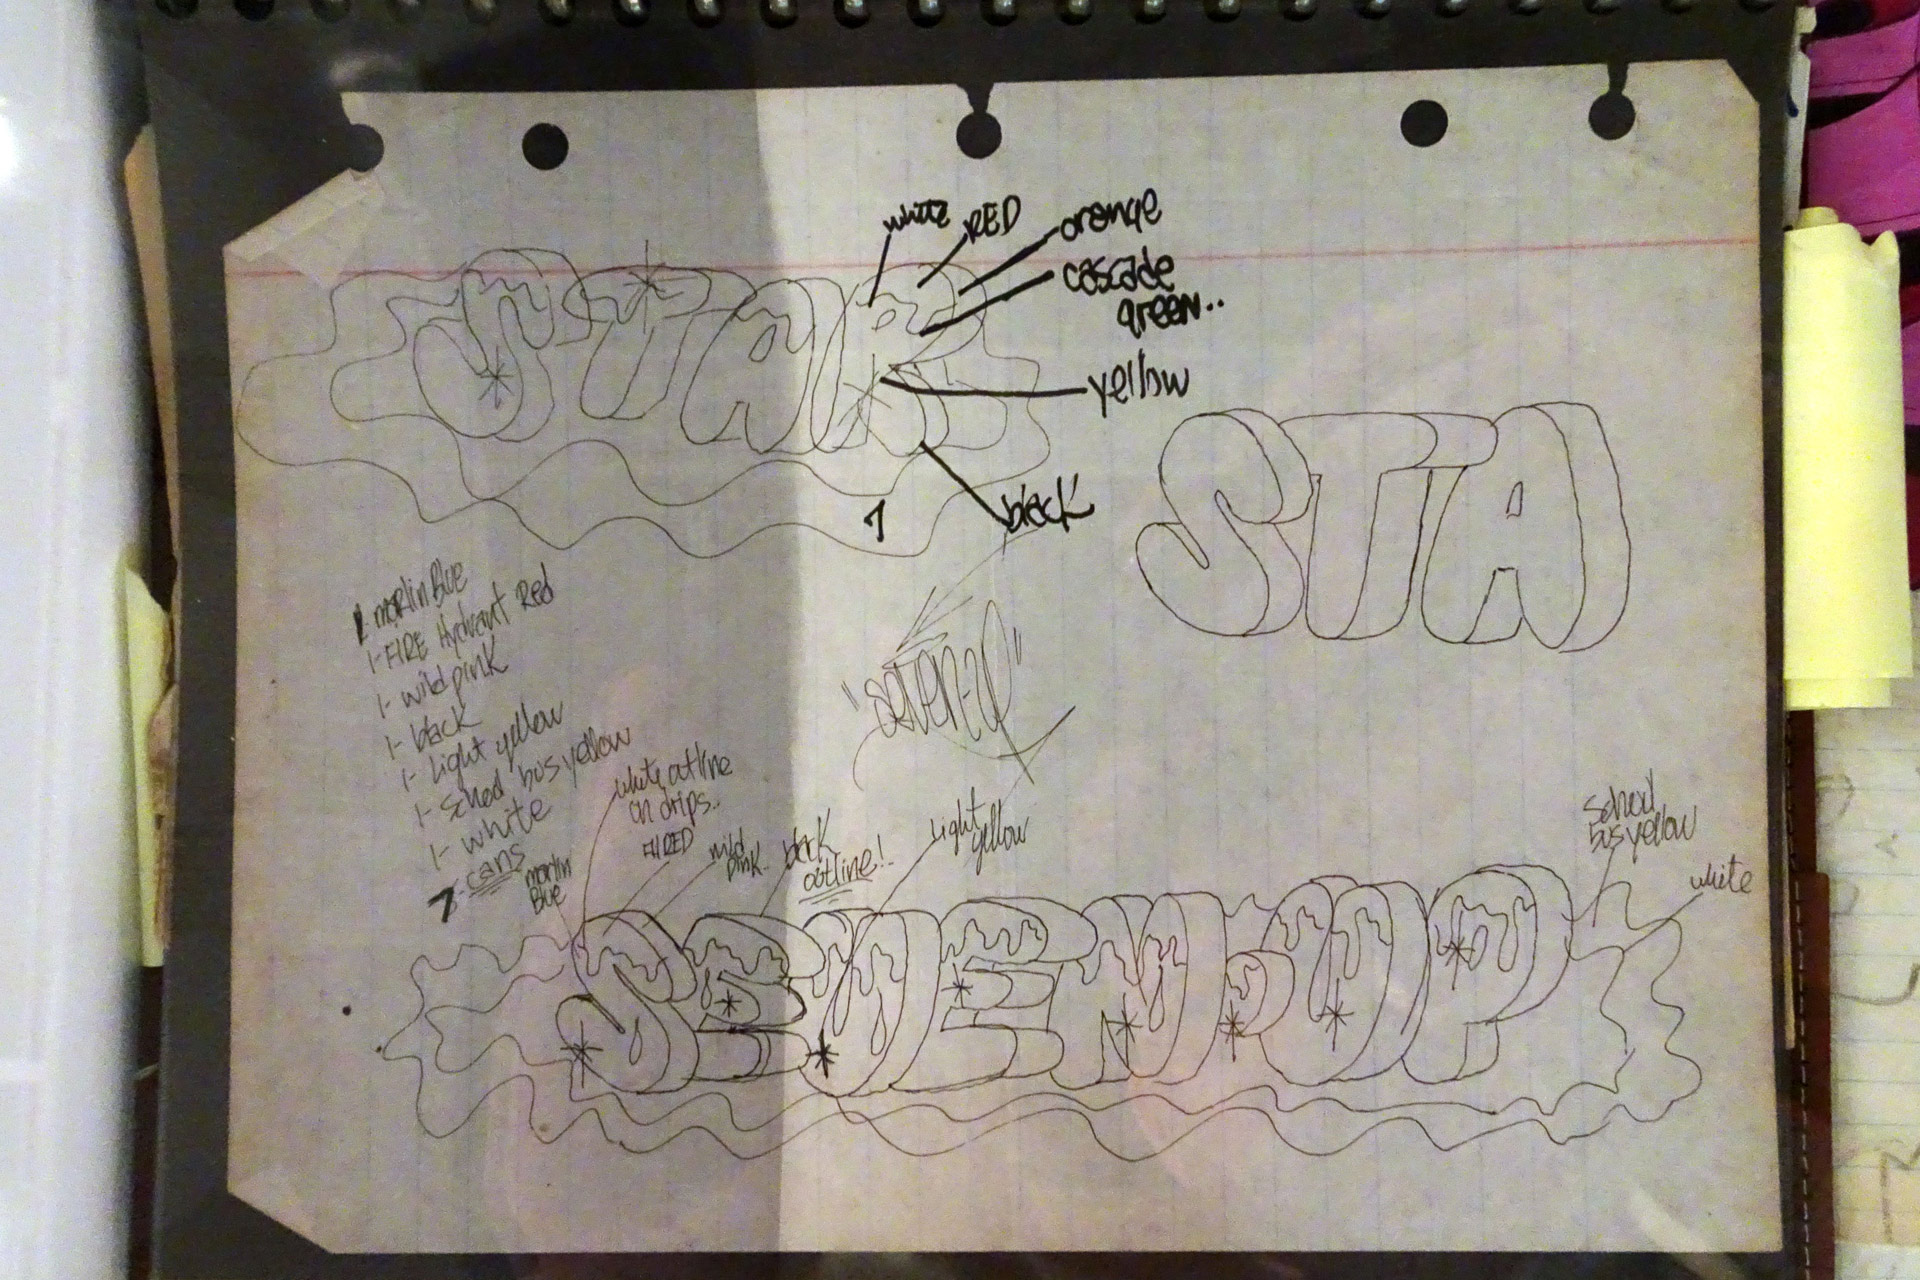 white
RED
orange
cascade
green..
yellow
black
7
STAR
STA
1- marlin Blue
1- FIRE Hydrant Red
1- wild pink
1- black
1- light yellow
1- school bus yellow
1- white
7- cans
"seven-up"
white outline
on drips..
FH RED
wild
pink..
black
outline!..
light
yellow
marlin
Blue
school
bus yellow
white
SEVEN.UP